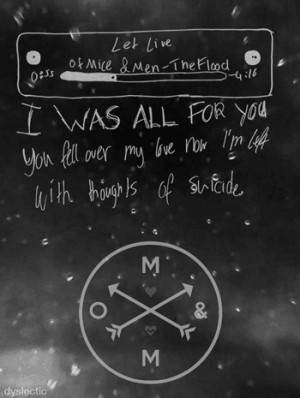 Let Live
Of Mice & Men - The Flood
0:55
-4:16
I WAS ALL FOR YOU
You fell over my love now I'm left
with thoughts of suicide
M
O
&
M
dyslectic